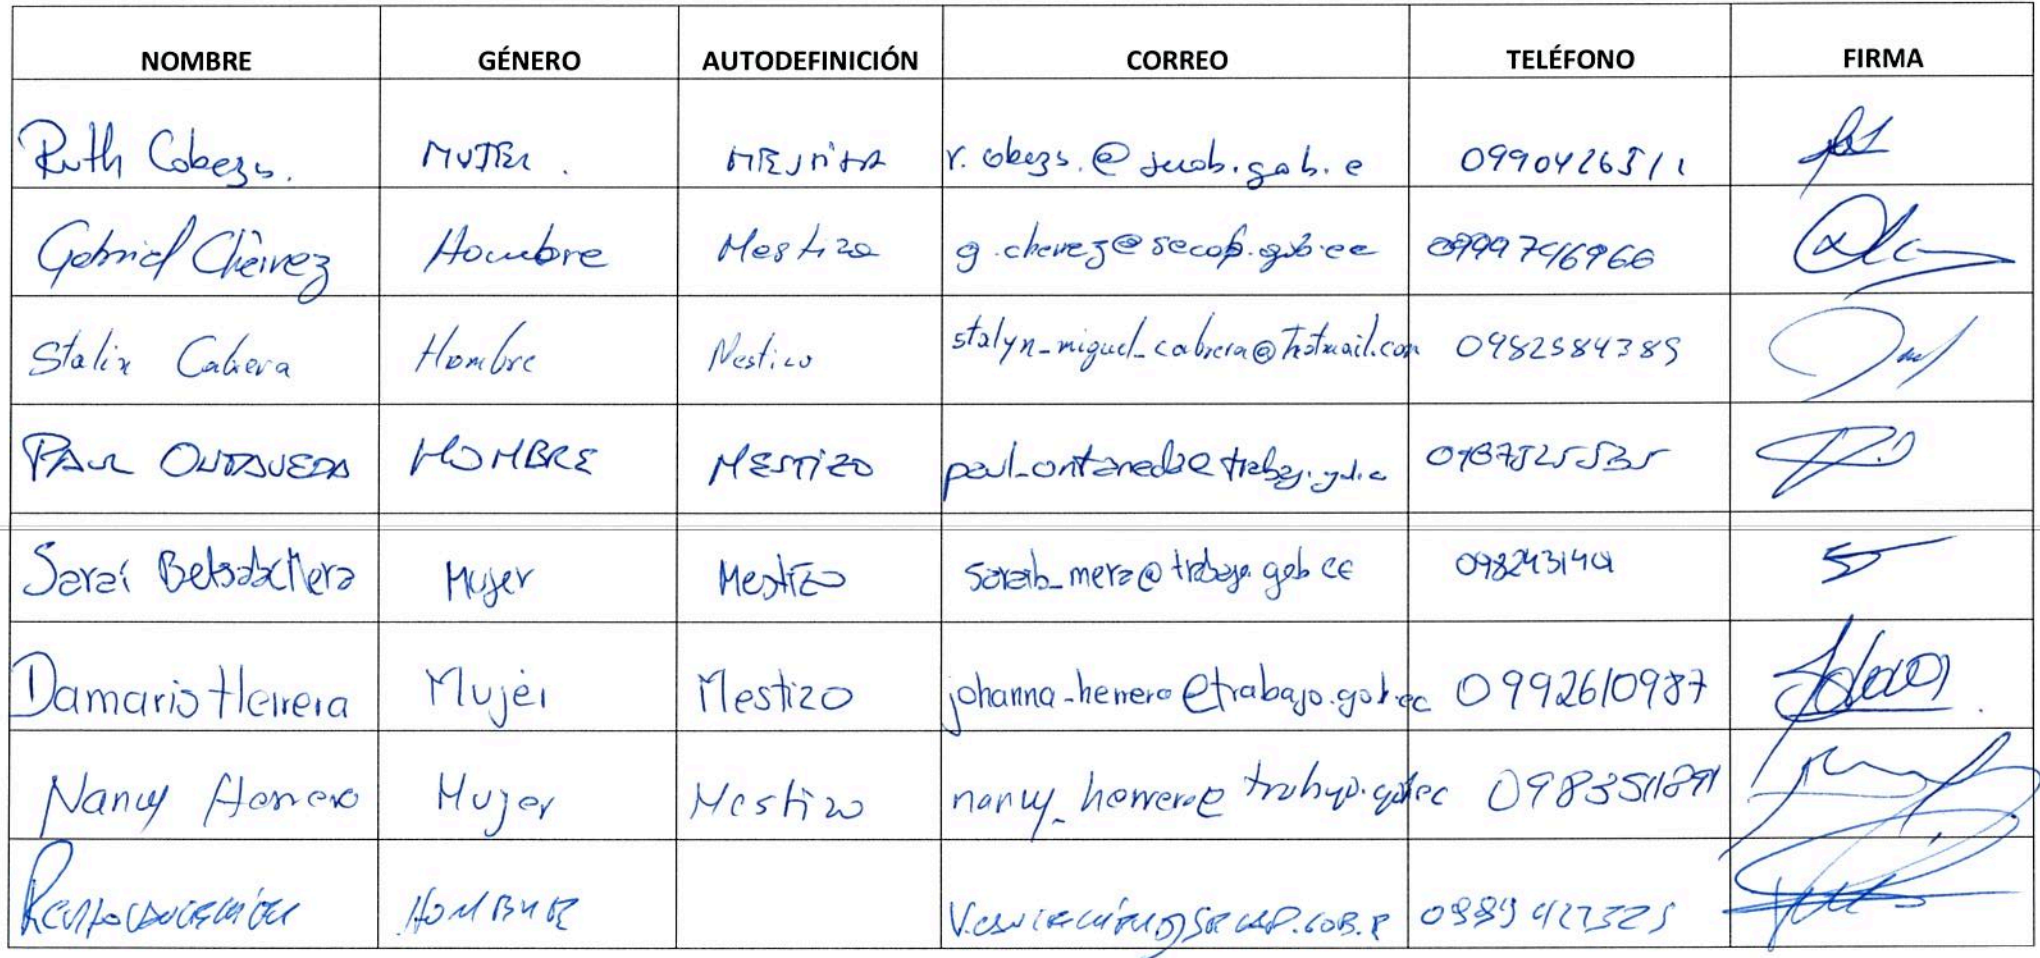 NOMBRE GÉNERO AUTODEFINICIÓN CORREO TELÉFONO FIRMA
Ruth Cobezs. MUJER. MESTIZA 0990426511
Gabriel Chávez Hombre Mestizo g.chavez@secap.gob.ec 0999746966
Stalin Cabrera Hombre Mestizo stalyn_miguel_cabrera@hotmail.com 0982584389
PAUL ONTANEDA HOMBRE MESTIZO
Saraí Betsabe Mera Mujer Mestizo saraib_mera@trabajo.gob.ec
Damaris Herrera Mujer Mestizo johanna-herrera@trabajo.gob.ec 0992610987
Nancy Herrera Mujer Mestizo nancy_herrera@trabajo.gob.ec 0983511891
HOMBRE